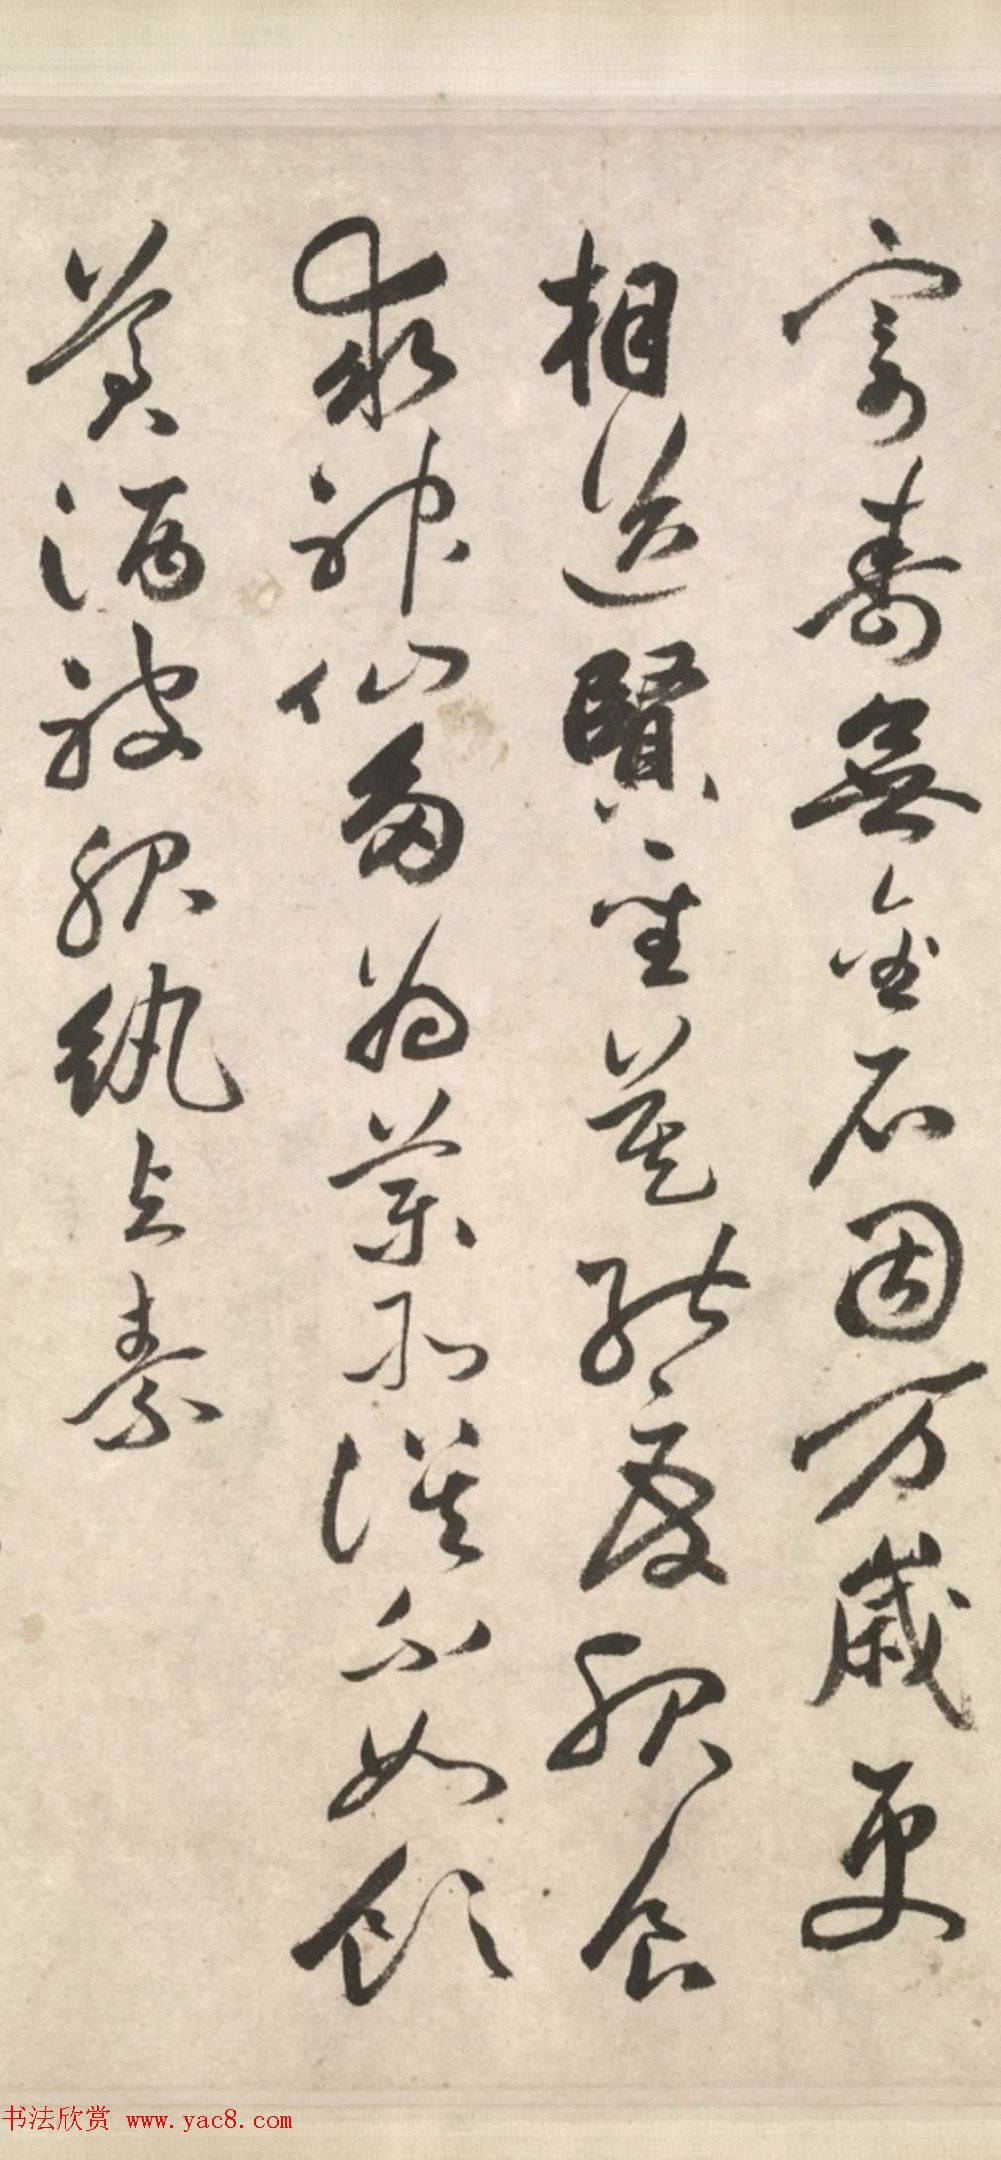 寄壽無金石固万歲更
相送賢聖莫能度服食
求神仙多為藥所誤不如飲
美酒被服紈与素
书法欣赏 www.yac8.com